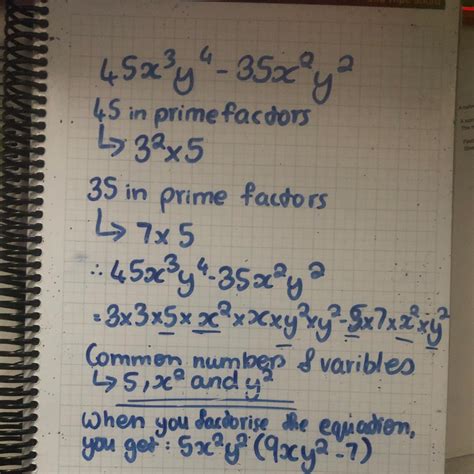 45x³y⁴ - 35x²y²
45 in prime factors
↳ 3²x5
35 in prime factors
↳ 7x5
∴ 45x³y⁴-35x²y²
= 3x3x5x x²x x x y²xy²-5x7x x²x y²
Common numbers & varibles
↳ 5, x² and y²
When you factorise the equation,
you get: 5x²y² (9xy²-7)